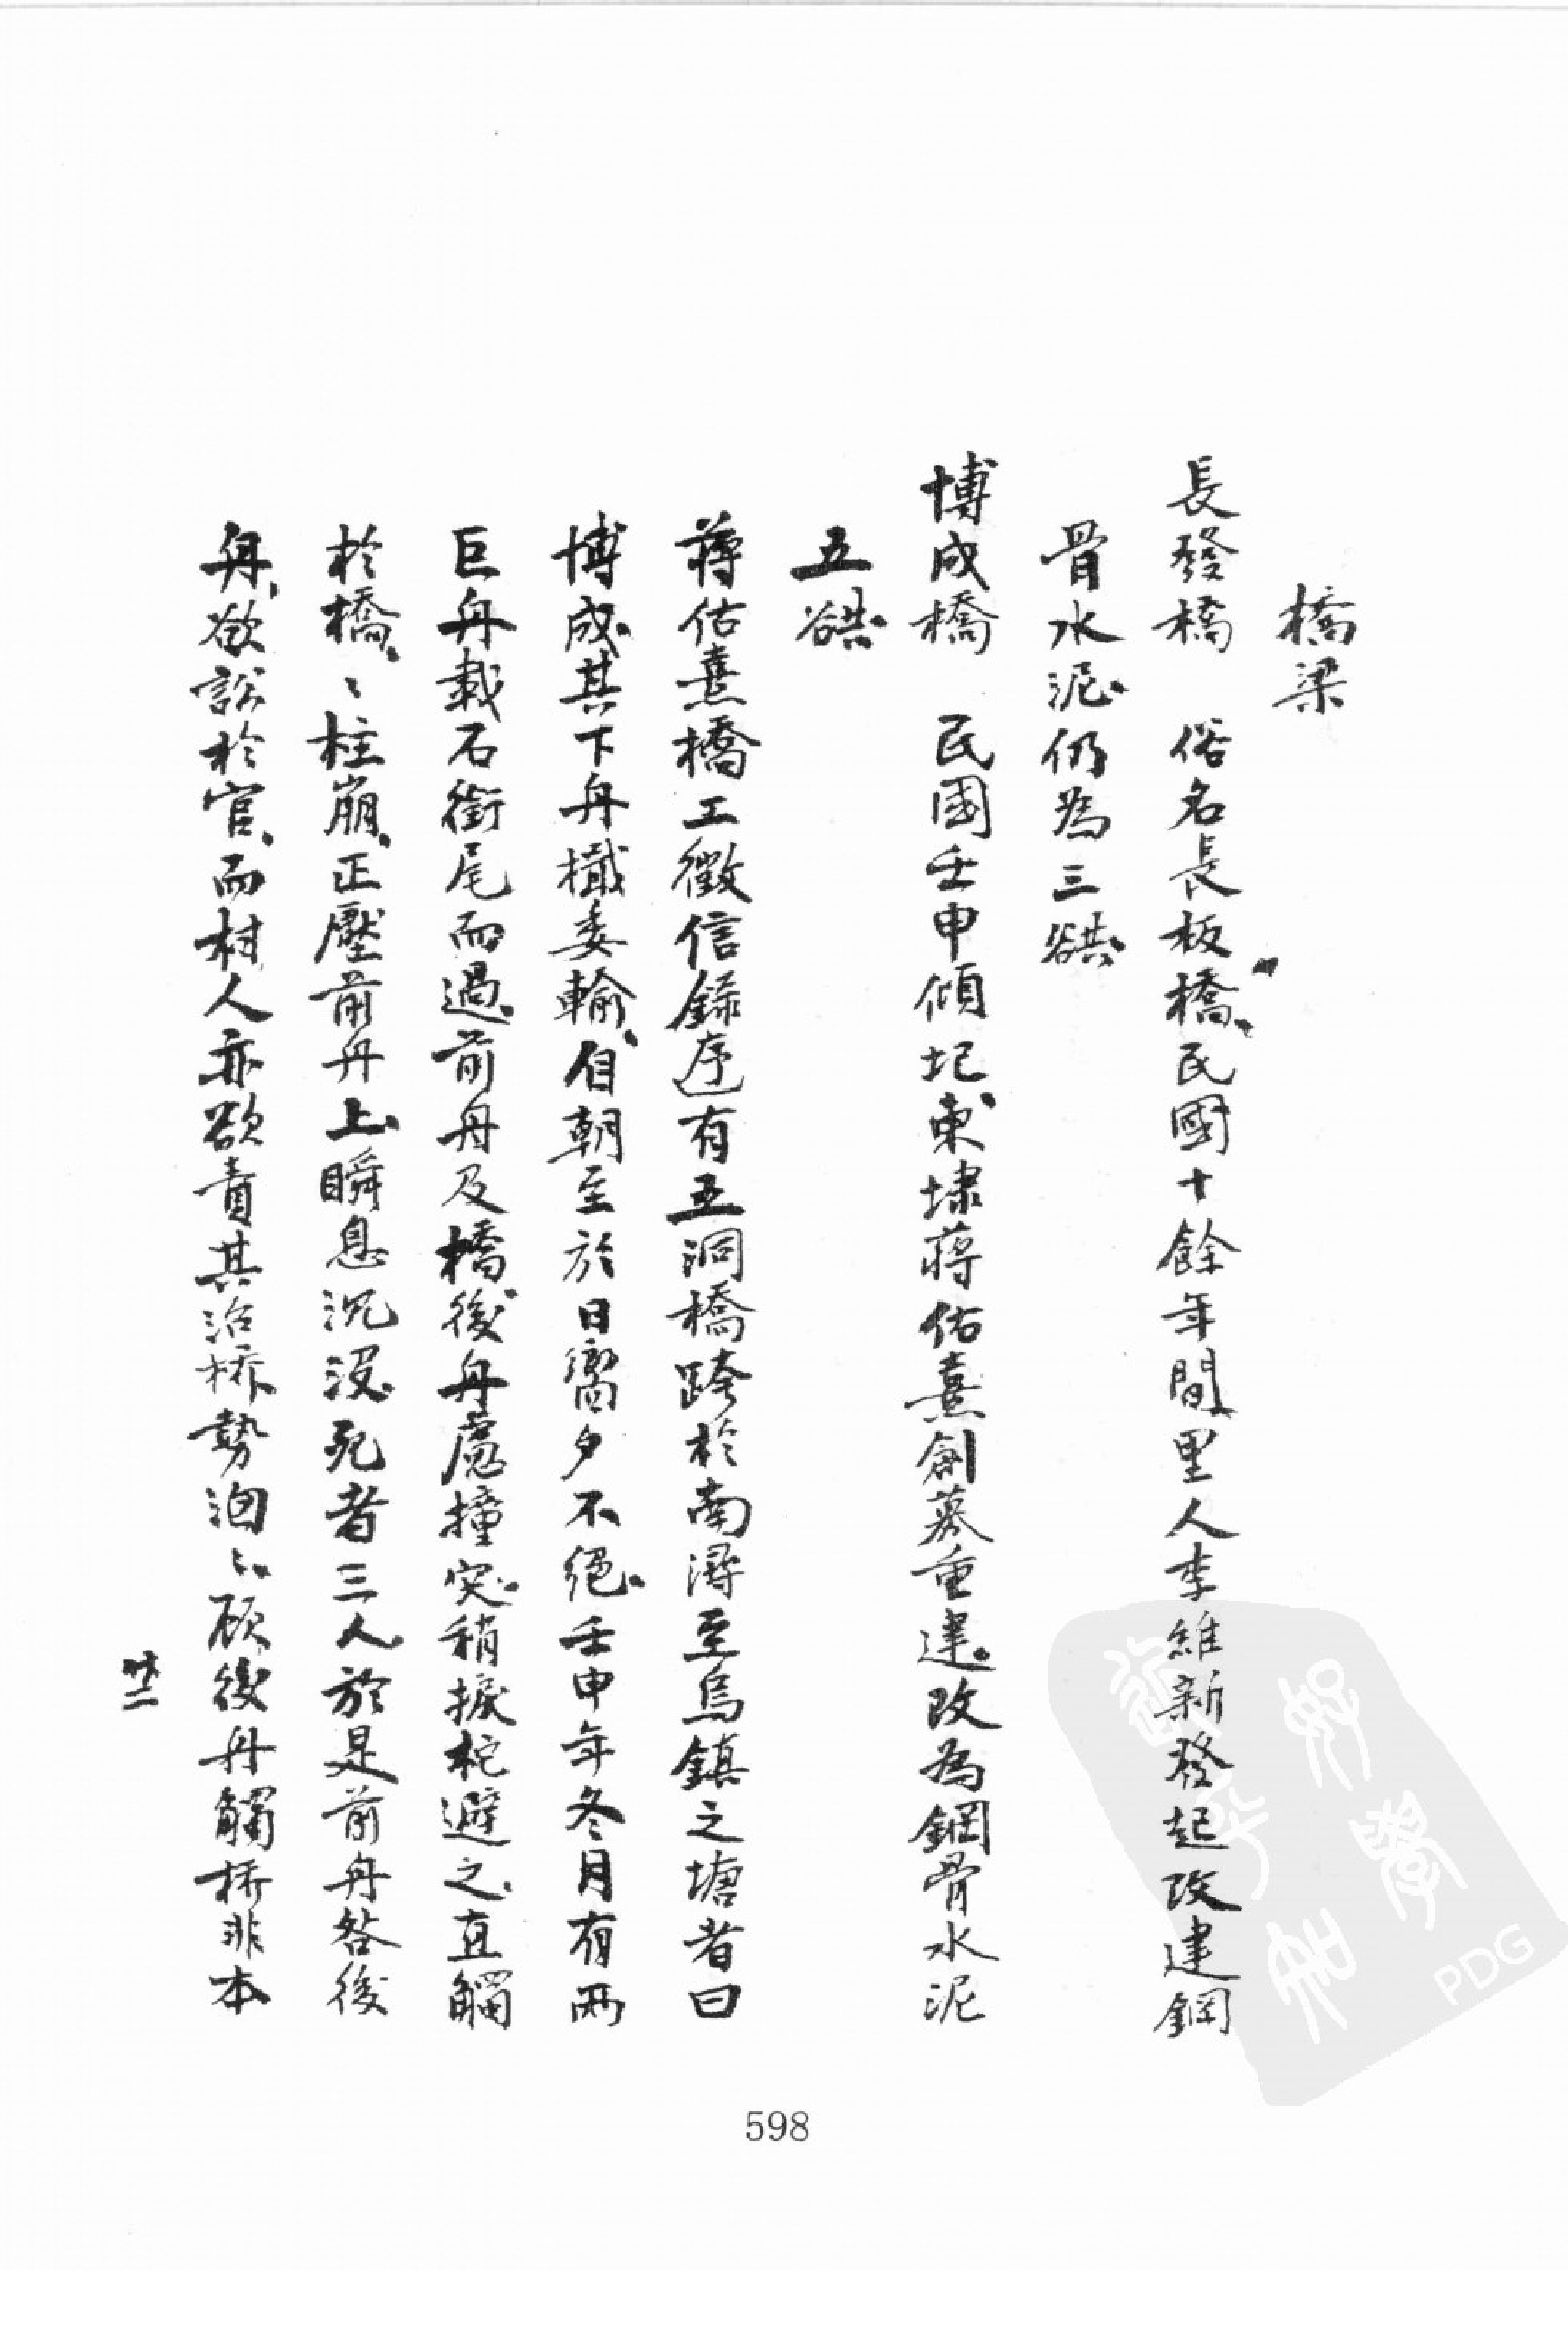 橋梁
長發橋　俗名長板橋、民國十餘年間、里人李維新發起改建鋼
骨水泥、仍為三谼、
博成橋　民國壬申傾圮、東埭蔣佑熹創募重建、改為鋼骨水泥
五谼、
蔣佑熹橋工徵信錄序有五洞橋跨於南潯至烏鎮之塘者曰
博成、其下舟檝委輸、自朝至於日嚮夕不絕、壬申年冬月有兩
巨舟載石銜尾而過、前舟及橋、後舟慮撞突、稍捩柁避之、直觸
於橋、〻柱崩、正壓前舟上、瞬息沉沒、死者三人、於是前舟咎後
舟、欲訟於官、而村人亦欲責其治橋、勢洶〻、顧後舟觸橋非本
廿二
598
PDG